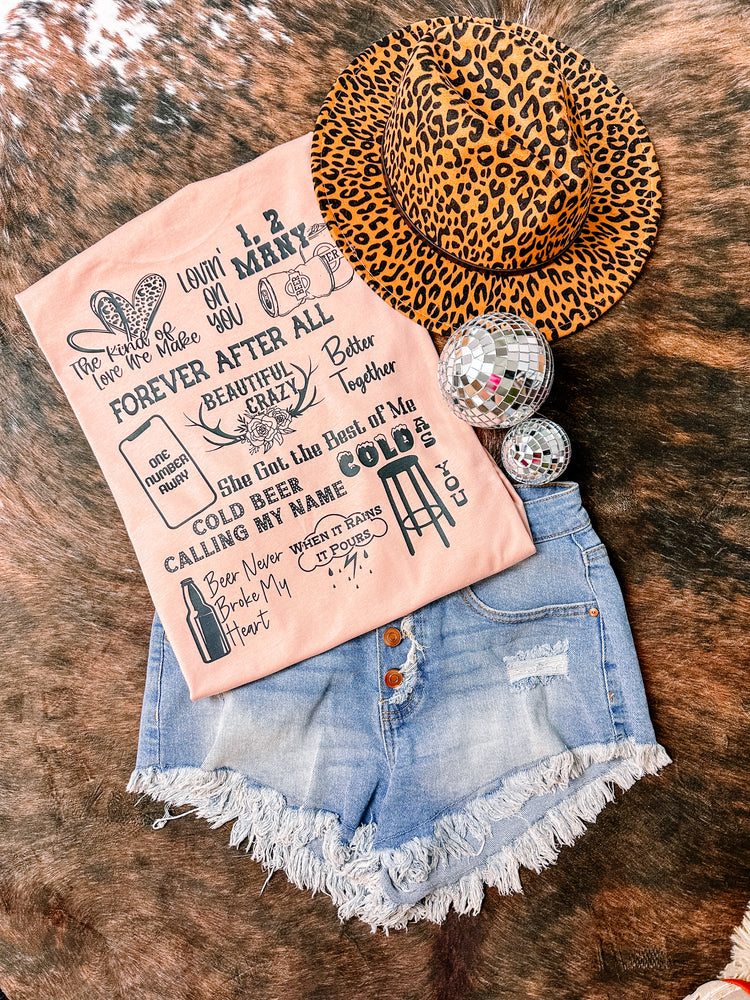 1, 2
MANY
BEER
BEER
LOVIN'
ON
YOU
The Kind of
Love We Make
FOREVER AFTER ALL
BEAUTIFUL
CRAZY
Better
Together
ONE
NUMBER
AWAY
She Got the Best of Me
COLD AS YOU
COLD BEER
CALLING MY NAME
WHEN IT RAINS
IT POURS
Beer Never
Broke My
Heart